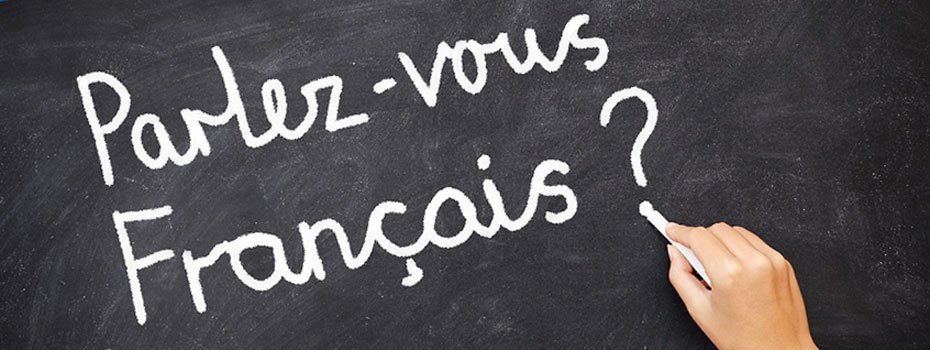 Parlez-vous
Français ?